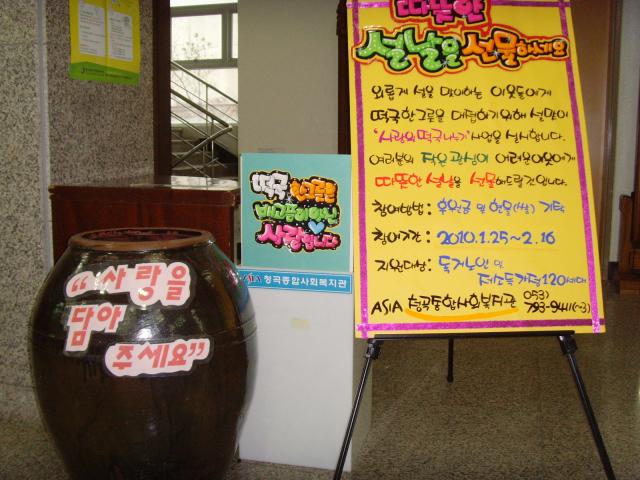 따뜻한
설날을 선물하세요
외롭게 설을 맞이하는 이웃들에게
떡국 한 그릇을 대접하기 위해 설맞이
'사랑의 떡국 나누기' 사업을 실시합니다.
여러분의 작은 관심이 어려운 이웃에게
따뜻한 설날을 선물해드릴것입니다.
참여방법 : 후원금 및 현물(쌀등) 기탁
참여기간 : 2010.1.25~2.16
지원대상 : 독거노인 및
저소득가정 120세대
ASIA 청곡종합사회복지관 053)
793-9411(~3)
떡국 한그릇은
배고픔이 아닌
사랑입니다
ASIA 청곡종합사회복지관
"사랑을
담아
주세요"